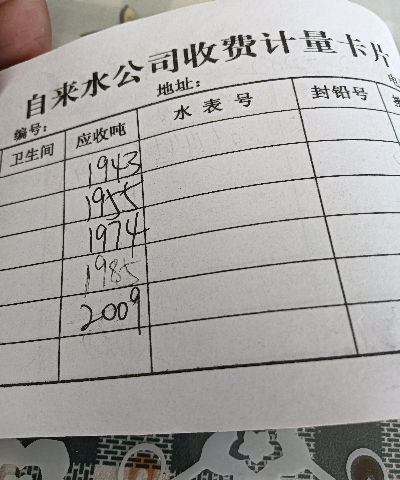 自来水公司收费计量卡片
编号： 地址：
卫生间 应收吨 水表号 封铅号
1943
1955
1974
1985
2009